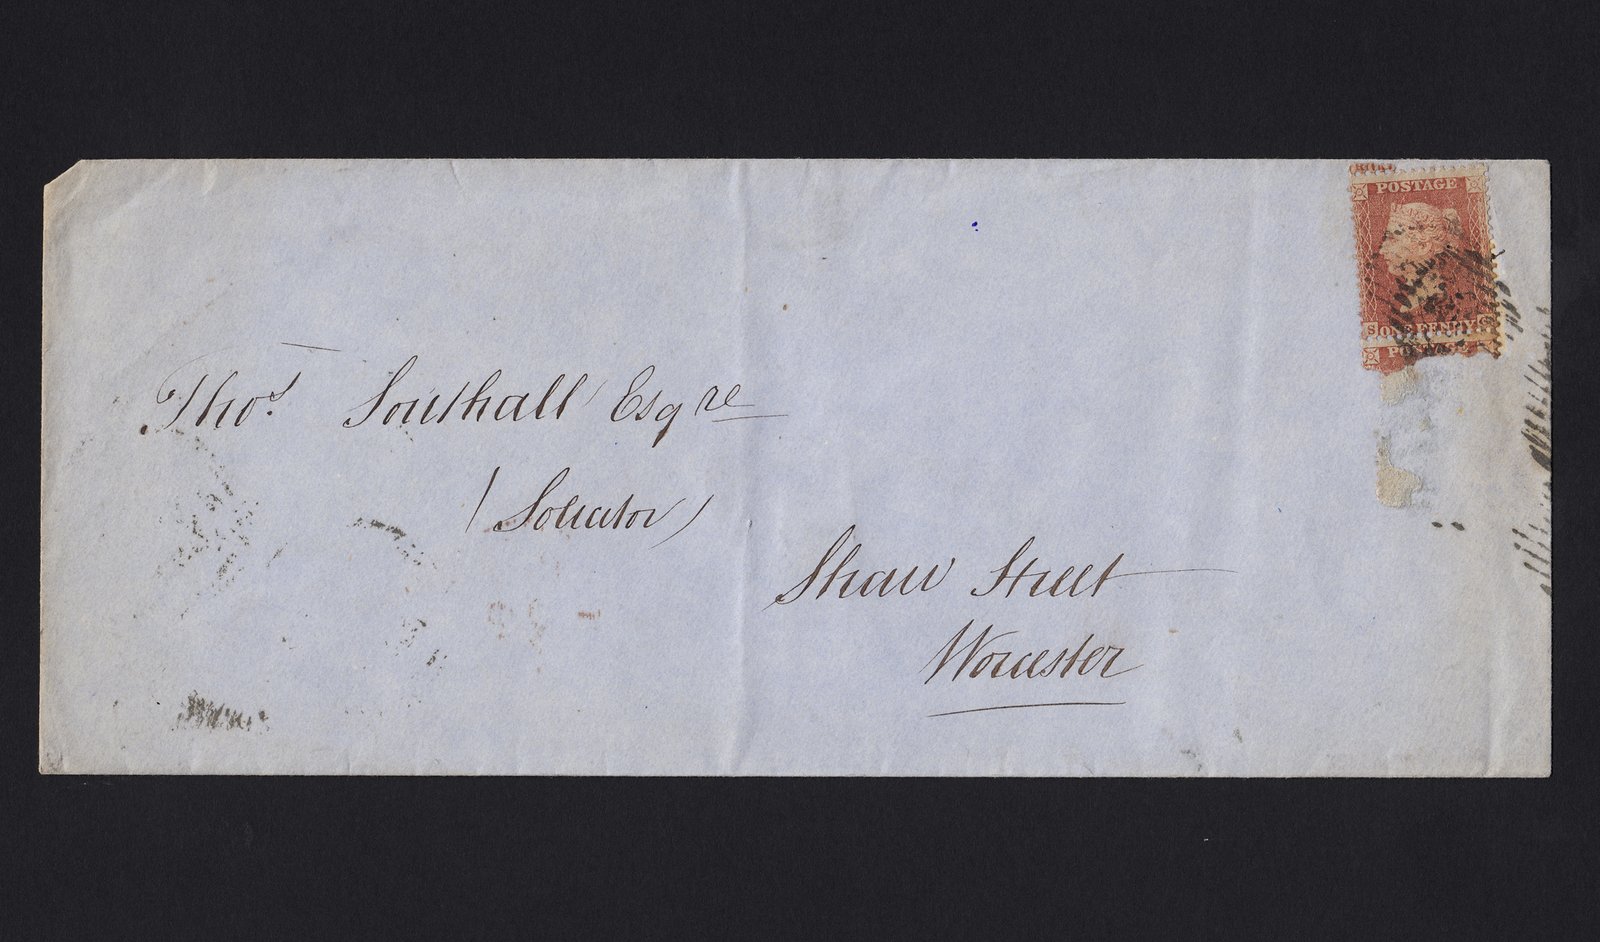 POSTAGE
S ONE PENNY
POSTAGE
Thos. Southall Esqre
(Solicitor)
Shaw Street
Worcester